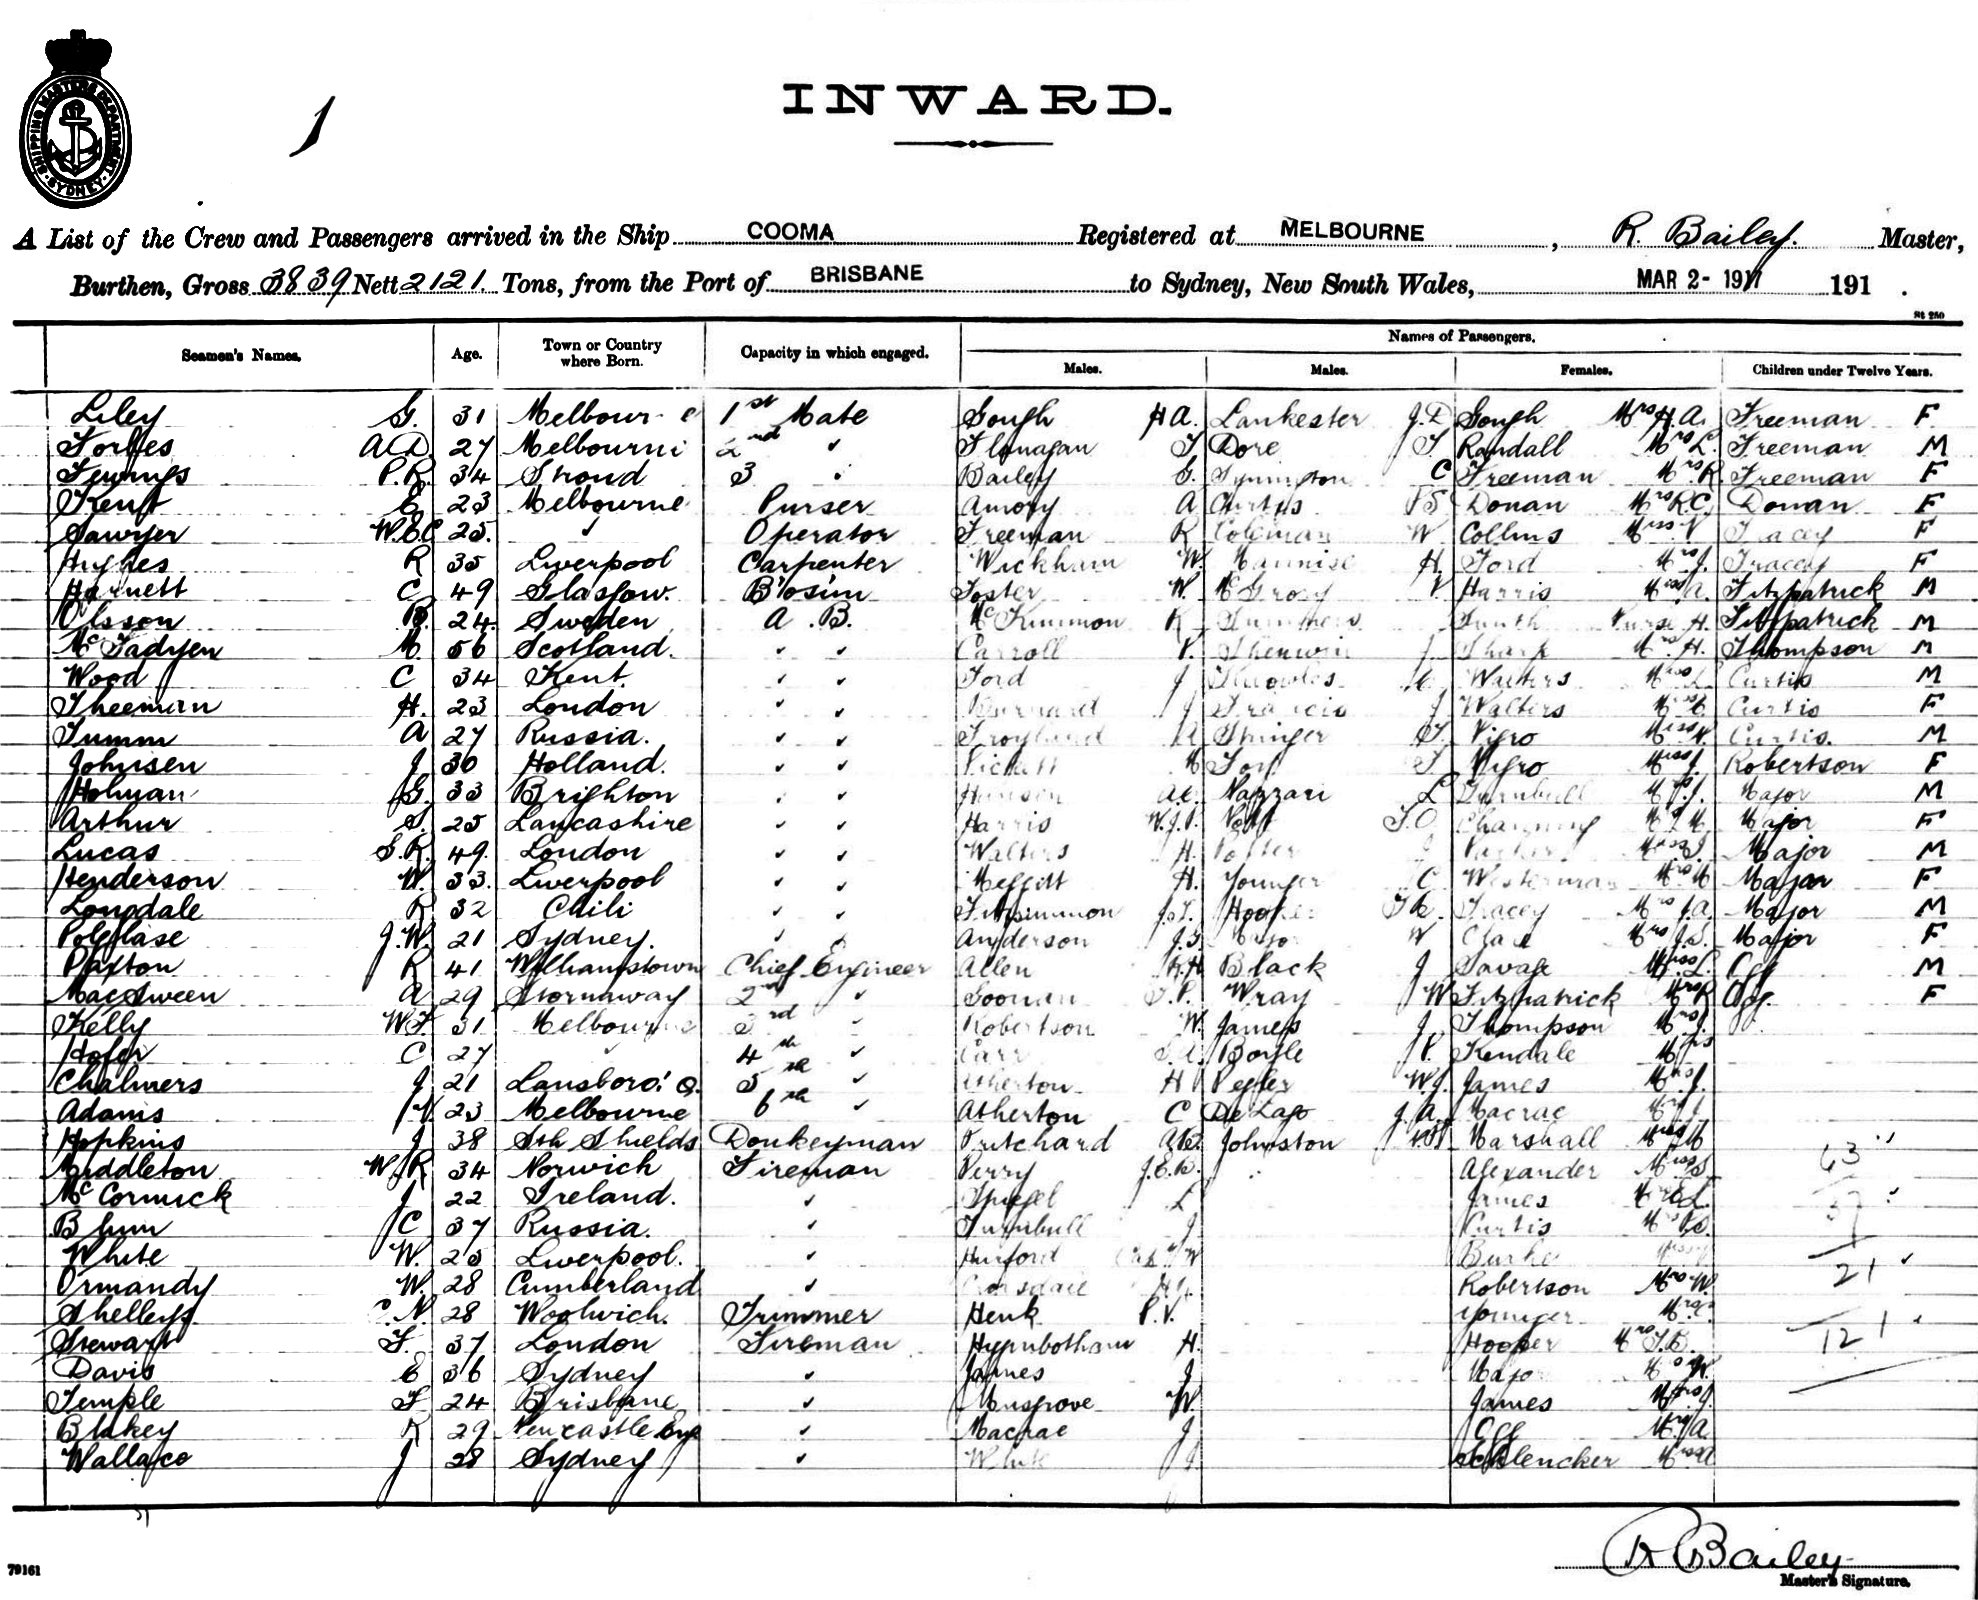 SHIPPING MASTERS DEPARTMENT
SYDNEY
1
INWARD.
A List of the Crew and Passengers arrived in the Ship COOMA Registered at MELBOURNE, R. Bailey. Master,
Burthen, Gross 3839 Nett 2121. Tons, from the Port of BRISBANE to Sydney, New South Wales, MAR 2- 1911 191 .
St 250
Names of Passengers.
Seamen's Names. Age. Town or Country where Born. Capacity in which engaged. Males. Males. Females. Children under Twelve Years.
Liley G. 31 1st Mate Gough H A. Lankester J. D Gough Mrs H. A. Freeman F
Forbes A D 27 2nd " Flanagan T Dore T Randall Mrs L. Freeman M
P. R. 34 Stroud 3 " Bailey G. Symington C Freeman Mrs R Freeman F
Kent E 23 Melbourne Purser Amory A Curtis P S Donan Mrs R C. Donan F
Sawyer W. E C 25. " Operator Freeman R Coleman W Collins Miss V Tracey F
Hughes R 35 Liverpool Carpenter Wickham W. H. Ford Mrs J. Tracey F
Harnett C 49 Glasgow. Bosun Foster W. V Harris Miss A. Fitzpatrick M
Olsson B. 24 Sweden A. B. McKinnon R Summers Smith Nurse H. Fitzpatrick M
McFadyen M. 56 Scotland. " " Carroll P. Sherwin J Sharp H. Thompson M
Wood C 34 Kent. " " Ford J Knowles Walters Miss Curtis M
Theeman H. 23 London " " J Francis J Walters Curtis F
Tumm A 27 Russia. " " Springer T. Vigro Miss Curtis. M
Johnsen J 30 Holland. " " T Vigro Miss J. Robertson F
Holman G. 33 Brighton " " Hansen A. C. Nazzari L Turnbull Major M
Arthur S. 25 Lancashire " " Harris W. J. T. O. Channing Major F
Lucas S. R. 49. London " " Walters H. Major M
Henderson W. 33. Liverpool " " Meffitt H. Younger C Westerman Major F
Lonsdale R 32 Chili " " Fitzsimmon J. T. Hooper Tracey Mrs J. A. Major M
Polglase J. W. 21 Sydney. " " Anderson J. S Major W Clare Mrs J. S. Major F
Paxton R 41 Williamstown Chief Engineer Allen Black J Savage Miss L. Ogg M
MacSween A 29 Stornoway 2nd " Goonan T. P. Wray W Fitzpatrick Mrs R Ogg. F
Kelly W. F. 31 Melbourne 3rd " Robertson W. James J Thompson Mrs J.
Hofer C 27 " 4th " Carr Boyle J P. Kendale Mrs
Chalmers J 21 5th " Atherton H Pegler W. J. James Mrs J.
Adams 23 Melbourne 6th " Atherton C De Lapo J. A. Macrae
Hopkins J 38 Sth Shields Donkeyman Pritchard Johnston Marshall 63
Middleton W. R 34 Norwich Fireman Perry Alexander Miss
McCormick J 22 Ireland. " Spiegel L James 37
Blum C 37 Russia. " Turnbull J Curtis
White W. 25 Liverpool. " Hurford Capt W Burke
Ormandy W. 28 Cumberland " Robertson Mrs W. 21
C. N. 28 Woolwich. Trimmer Henk P. V. Younger Mrs C.
Stewart F. 37 London Fireman Hypnbotham H. Hooper Mrs 121
Davis E 36 Sydney " James J Major Mrs W.
Temple F 24 Brisbane " Musgrove W. James Mrs J.
Blakey R 29 Newcastle Eng " Macrae J Mrs A.
Wallace J 28 Sydney " White J. Schlencker
R Bailey
Master's Signature.
79161